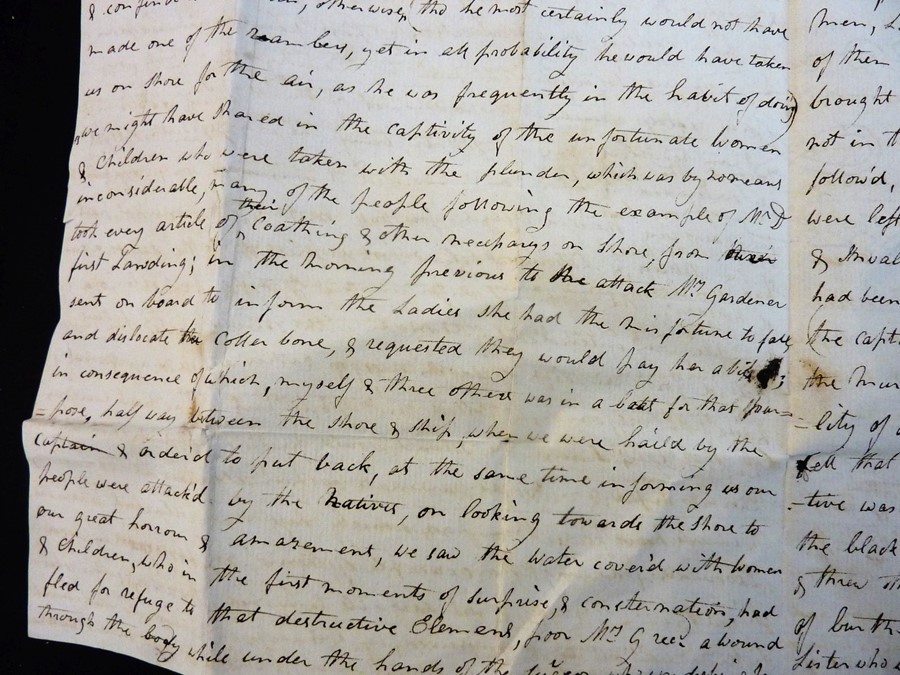 otherwise, tho' he most certainly would not have
made one of the ramblers, yet in all probability he would have taken
us on shore for the air, as he was frequently in the habit of doing
we might have Shared in the captivity of the unfortunate Women
& Children who were taken with the plunder, which was by no means
inconsiderable, many of the people following the example of Mr. D
took every article of their Cloathing & other necessarys on Shore, from
first Landing; in the morning previous to the attack Mrs Gardener
sent on board to inform the Ladies she had the misfortune to fall,
and dislocate the Coller bone, & requested they would pay her a
in consequence of which, myself & three others was in a boat for that pur=
=pose, half way between the shore & Ship, when we were haild by the
Captain & orderd to put back, at the same time informing us our
people were attack'd by the Natives, on looking towards the Shore to
our great horrour & amazement, we saw the water coverd with Women
& Children, who in the first moments of surprise, & consternation, had
fled for refuge to that destructive Element, poor Mrs a wound
through the body while under the hands of the
Men,
of them
brought
not in
follow'd,
were left
&
had been
the
the
=lity of
that
=tive was
the black
& threw
of
Sister who